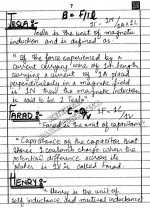 7
TESLA:-
B = F/Il
Tesla is the unit of magnetic
induction and is defined as.
"If the force experienced by a
current carrying wire of 1m length
carrying a current of 1A placed
perpendicularly in a magnetic
is 1N then the magnetic induction
is said to be 1 Tesla."
FARAD:-
Farad is the unit of capacitance
"Capacitance of the capacitor that
stores 1 coulomb charge given the
potential difference across its
plates is 1V is called Farad.
HENRY:-
Henry is the unit of
self inductance and mutual inductance